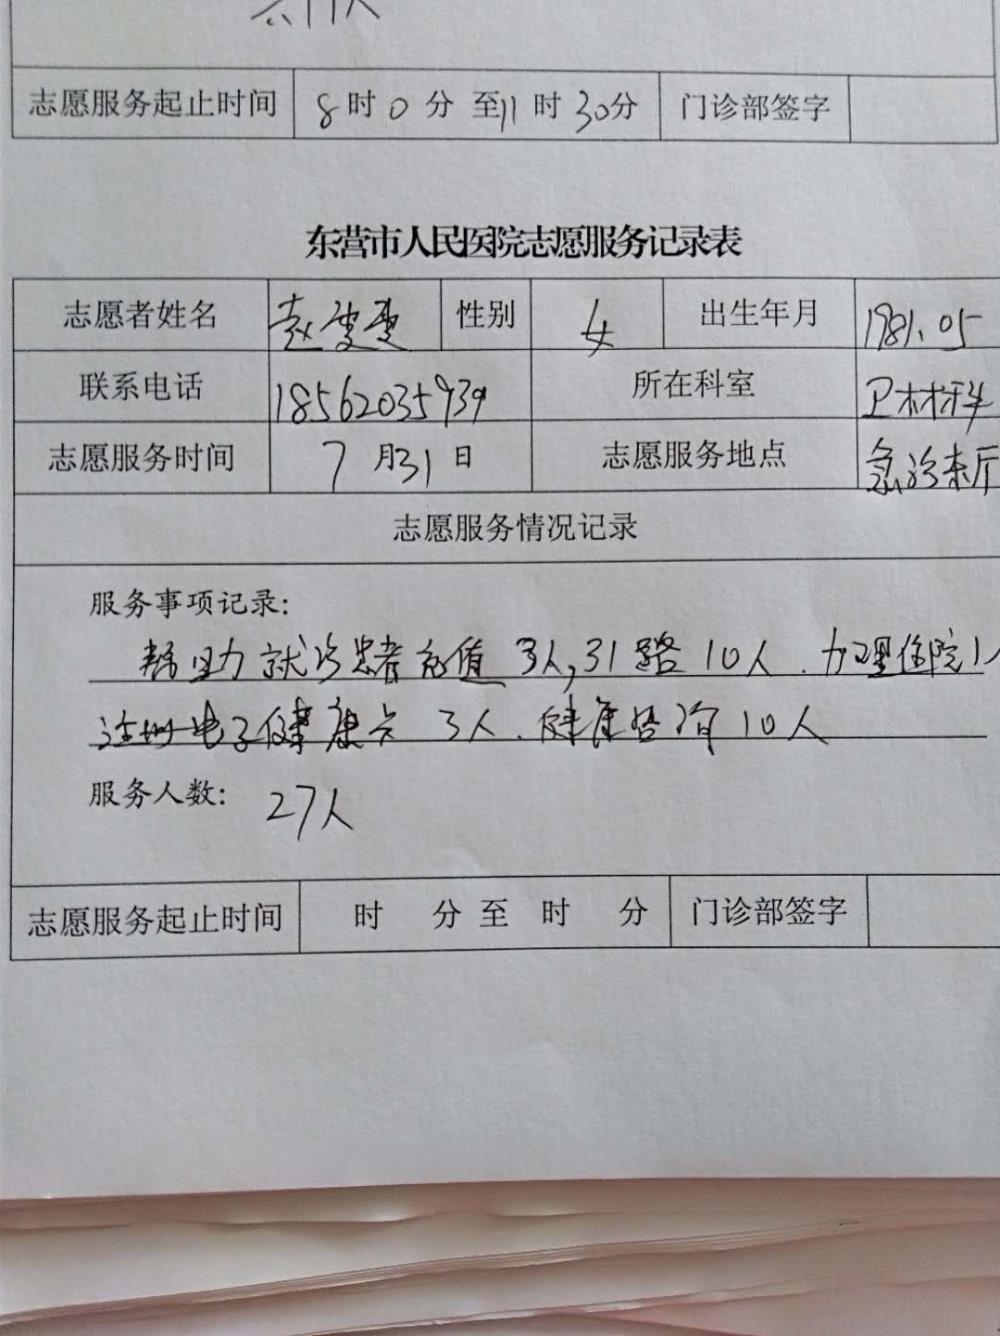 志愿服务起止时间 8时0分至11时30分 门诊部签字
东营市人民医院志愿服务记录表
志愿者姓名 赵雯雯 性别 女 出生年月 1981.05
联系电话 18562035939 所在科室 卫材科
志愿服务时间 7月31日 志愿服务地点 急诊东厅
志愿服务情况记录
服务事项记录:
帮助就诊患者充值3人,引路10人.办理住院1人
注册电子健康卡3人.健康咨询10人
服务人数: 27人
志愿服务起止时间 时 分至 时 分 门诊部签字